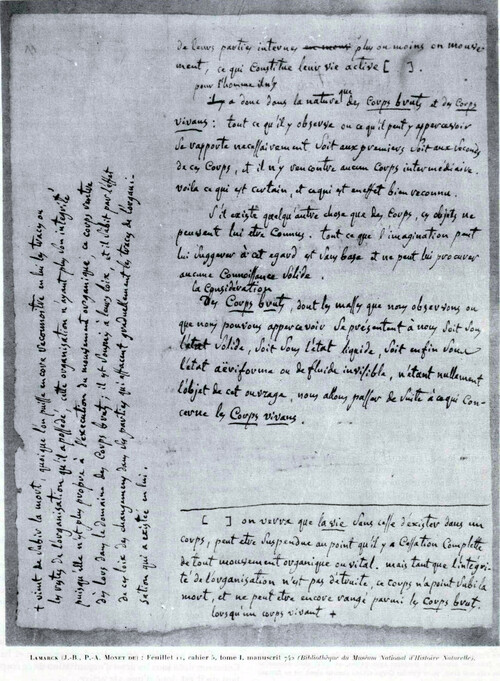 de leurs parties internes plus ou moins en mouve-
ment, ce qui constitue leur vie active [ ].
pour l'homme il n'y
a donc dans la nature que des Corps bruts et des Corps
vivans : tout ce qu'il y observe ou ce qu'il peut y appercevoir
se rapporte necessairement soit aux premiers soit aux seconds
de ces Corps, et il n'y rencontre aucun Corps intermediaire.
voila ce qui est certain, et ce qui est en effet bien reconnu.
S'il existe quelqu'autre chose que des Corps, ces objets ne
peuvent lui être Connus. tout ce que l'imagination peut
lui suggerer à cet egard est sans base et ne peut lui procurer
aucune Connoissance solide.
la considération
Des Corps bruts, dont les masses que nous observons ou
que nous pouvons appercevoir se présentent à nous soit sous
l'état solide, soit sous l'état liquide, soit enfin sous
l'état aëriforme ou de fluide invisible, n'étant nullement
l'objet de cet ouvrage, nous allons passer de suite à ce qui con-
cerne les Corps vivans.
[ ] on verra que la vie sans cesser d'exister dans un
corps, peut être suspendue au point qu'il y a Cessation Complette
de tout mouvement organique ou vital. mais tant que l'integri-
té de l'organisation n'est pas détruite, ce corps n'a point subi la
mort, et ne peut être encore rangé parmi les Corps brut.
lorsqu'un corps vivant +
+ vient de subir la mort, quoique l'on puisse encore reconnoitre en lui les traces ou
les restes de l'organisation qu'il a possédé, cette organisation n'ayant plus son intégrité
puisqu'elle n'est plus propre à l'execution du mouvement organique, ce corps rentre
dès lors dans le domaine des Corps brut; il est soumis à leurs loix, et il subit par l'effet
de ces loix des changemens dans ses parties qui effacent graduellement les traces de l'organi-
sation qui a existée en lui.
LAMARCK (J.-B., P.-A. MONET DE) : Feuillet 11, cahier 5, tome I, manuscrit 742 (Bibliothèque du Muséum National d'Histoire Naturelle).